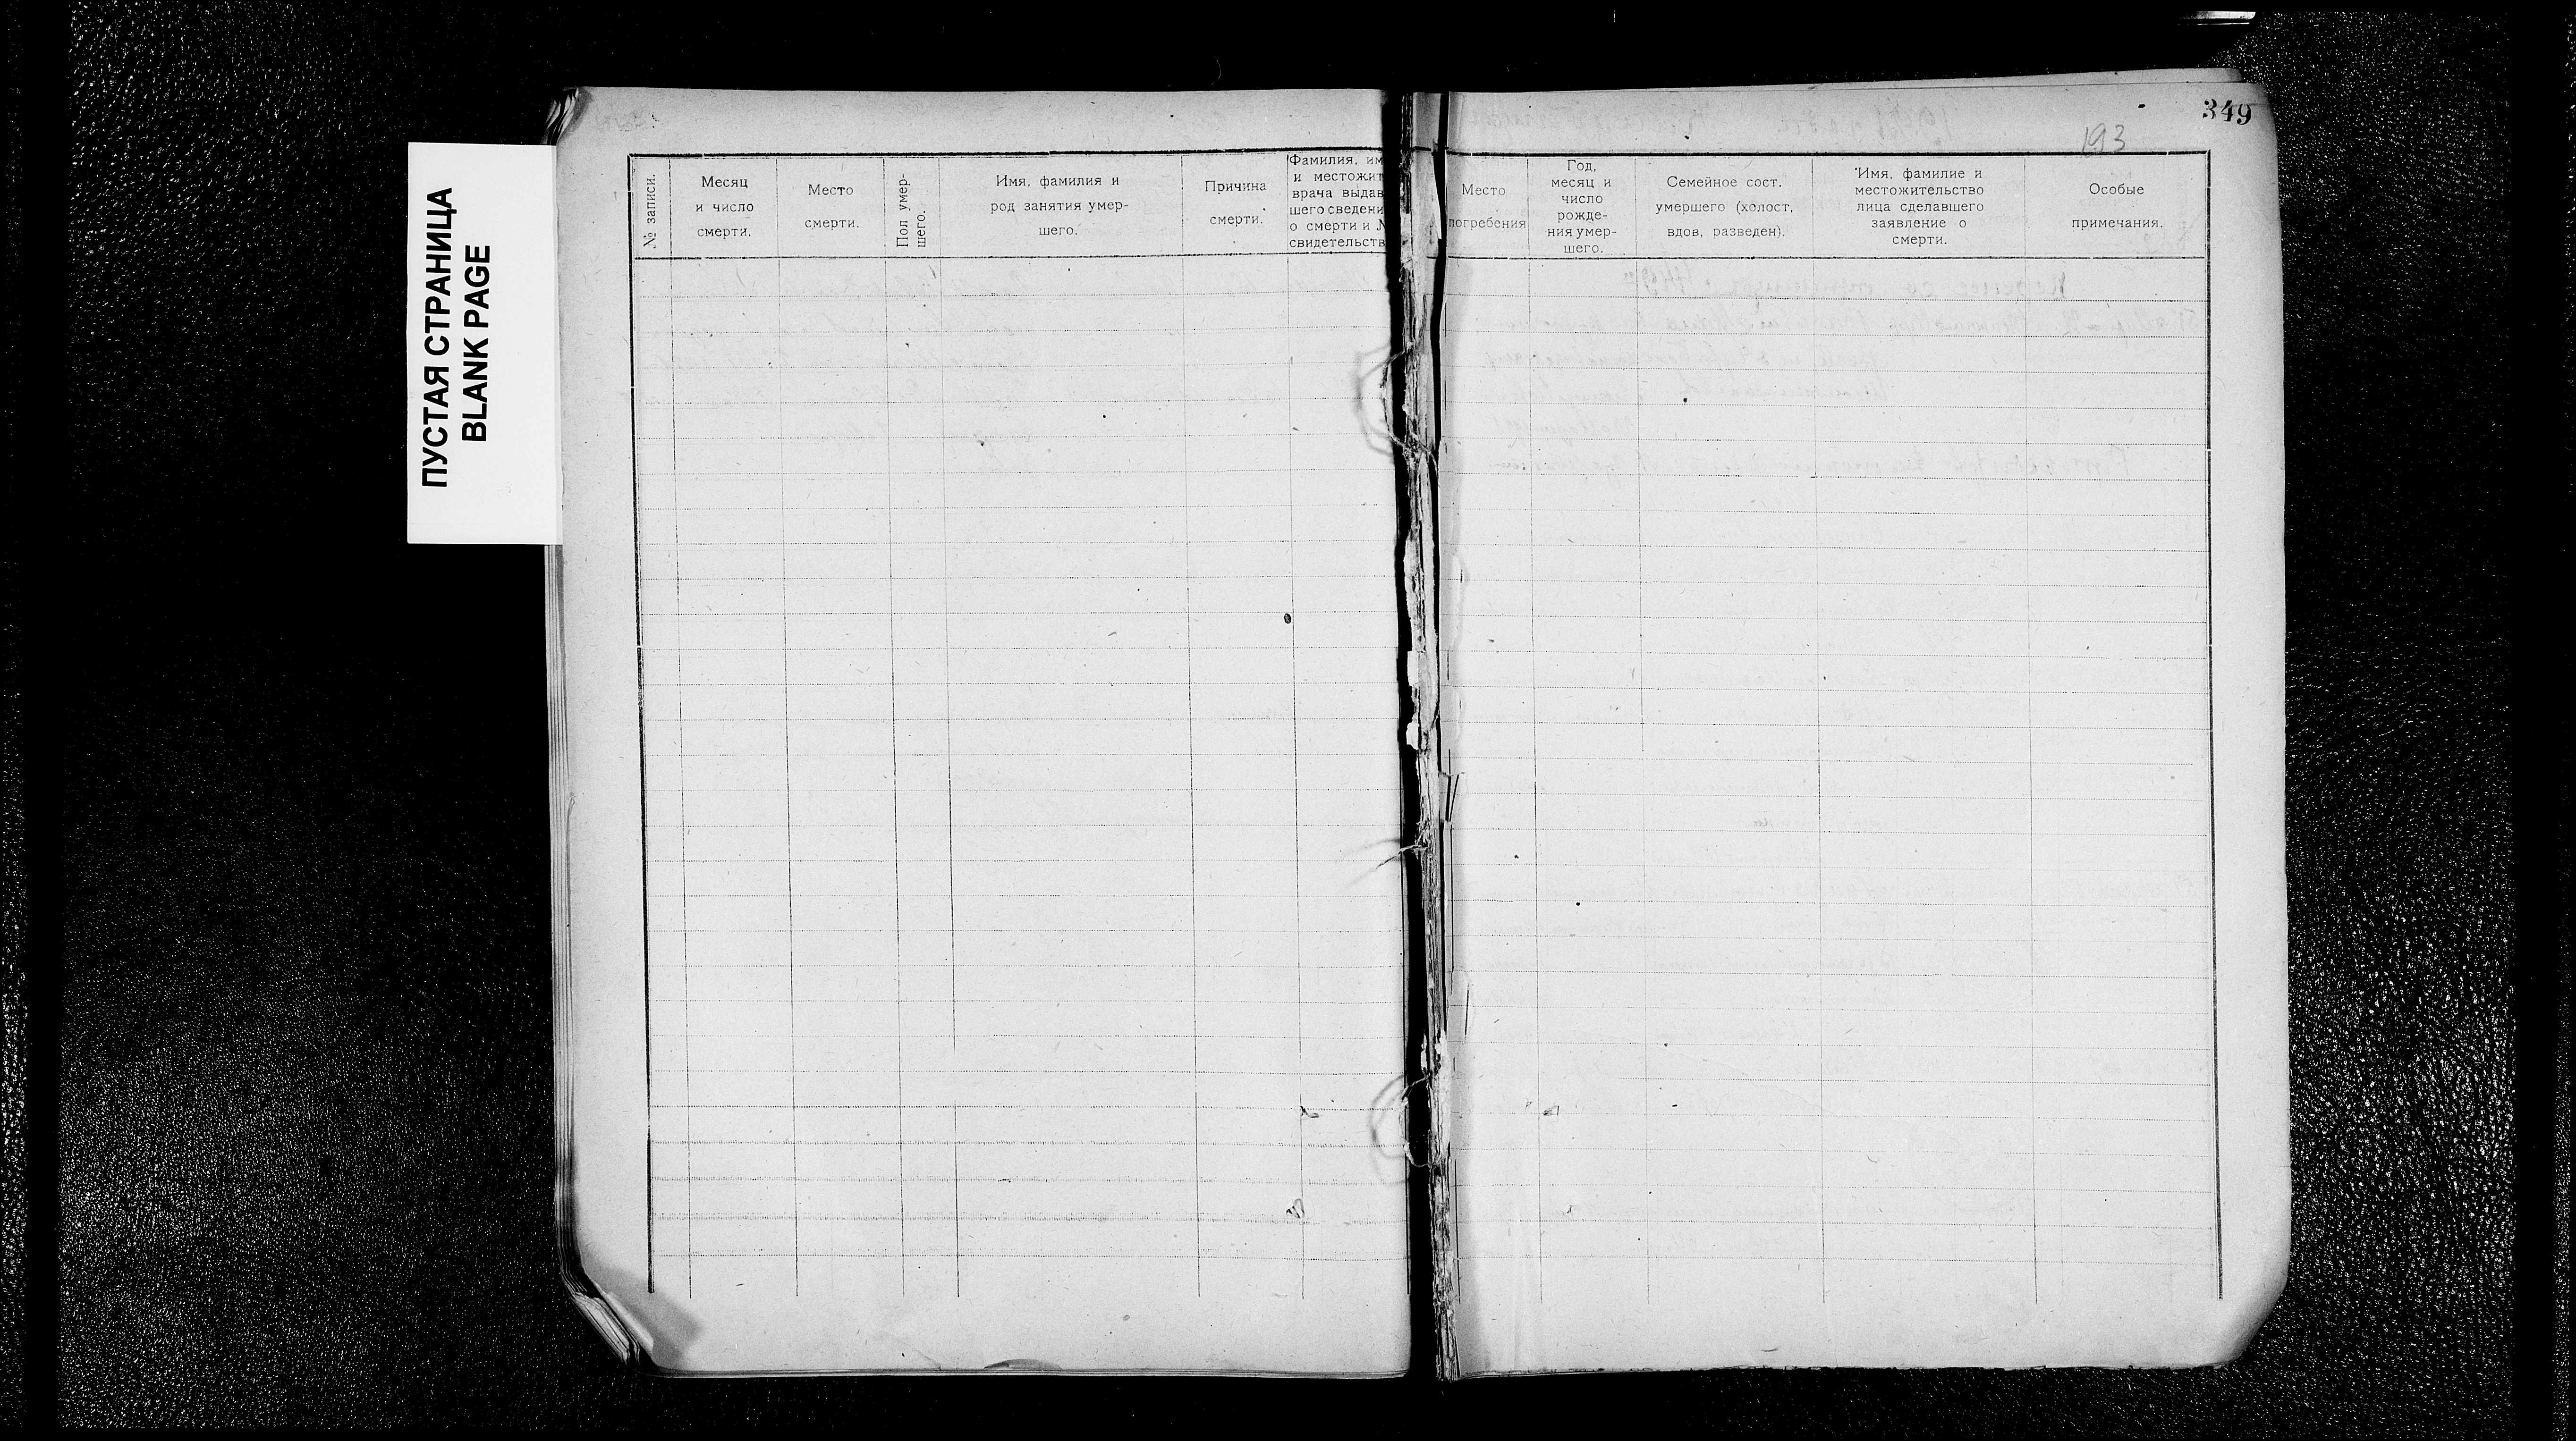 ПУСТАЯ СТРАНИЦА
BLANK PAGE
349
193
№ записи.
Месяц
и число
смерти.
Место
смерти.
Пол умер-
шего.
Имя, фамилия и
род занятия умер-
шего.
Причина
смерти.
Фамилия, им
и местожит
врача выдав
шего сведени
о смерти и N
свидетельств
Место
погребения
Год,
месяц и
число
рожде-
ния умер-
шего.
Семейное сост.
умершего (холост,
вдов, разведен).
Имя, фамилие и
местожительство
лица сделавшего
заявление о
смерти.
Особые
примечания.